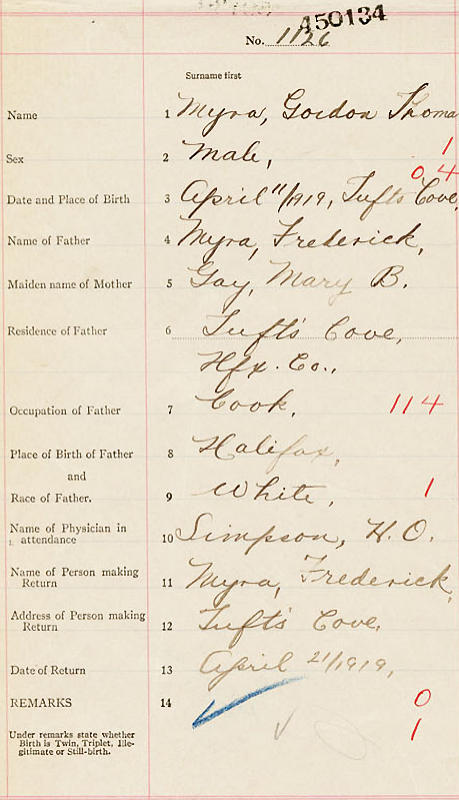 450134
No. 1126
Surname first
Name 1 Myra, Gordon Thoma
Sex 2 Male, 1
0 4
Date and Place of Birth 3 April 11/1919, Tufts Cove,
Name of Father 4 Myra, Frederick,
Maiden name of Mother 5 Gay, Mary B.
Residence of Father 6 Tuft's Cove,
Hfx. Co.,
Occupation of Father 7 Cook, 114
Place of Birth of Father 8 Halifax,
and
Race of Father. 9 White, 1
Name of Physician in
attendance 10 Simpson, H. O.
Name of Person making
Return 11 Myra, Frederick,
Address of Person making
Return 12 Tuft's Cove,
Date of Return 13 April 21/1919,
REMARKS 14 0
Under remarks state whether
Birth is Twin, Triplet, Ille-
gitimate or Still-birth. 1